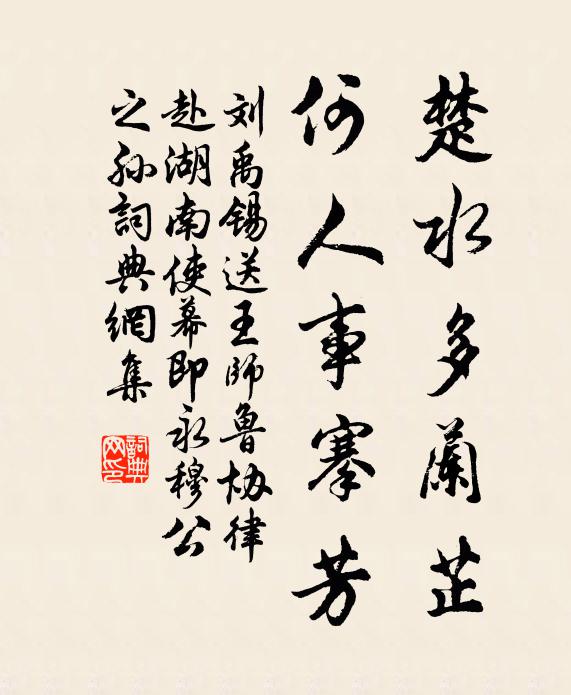 楚水多蘭芷
何人事搴芳
刘禹锡送王师鲁协律
赴湖南使幕即永穆公
之孙詞典網集
詞典
网印